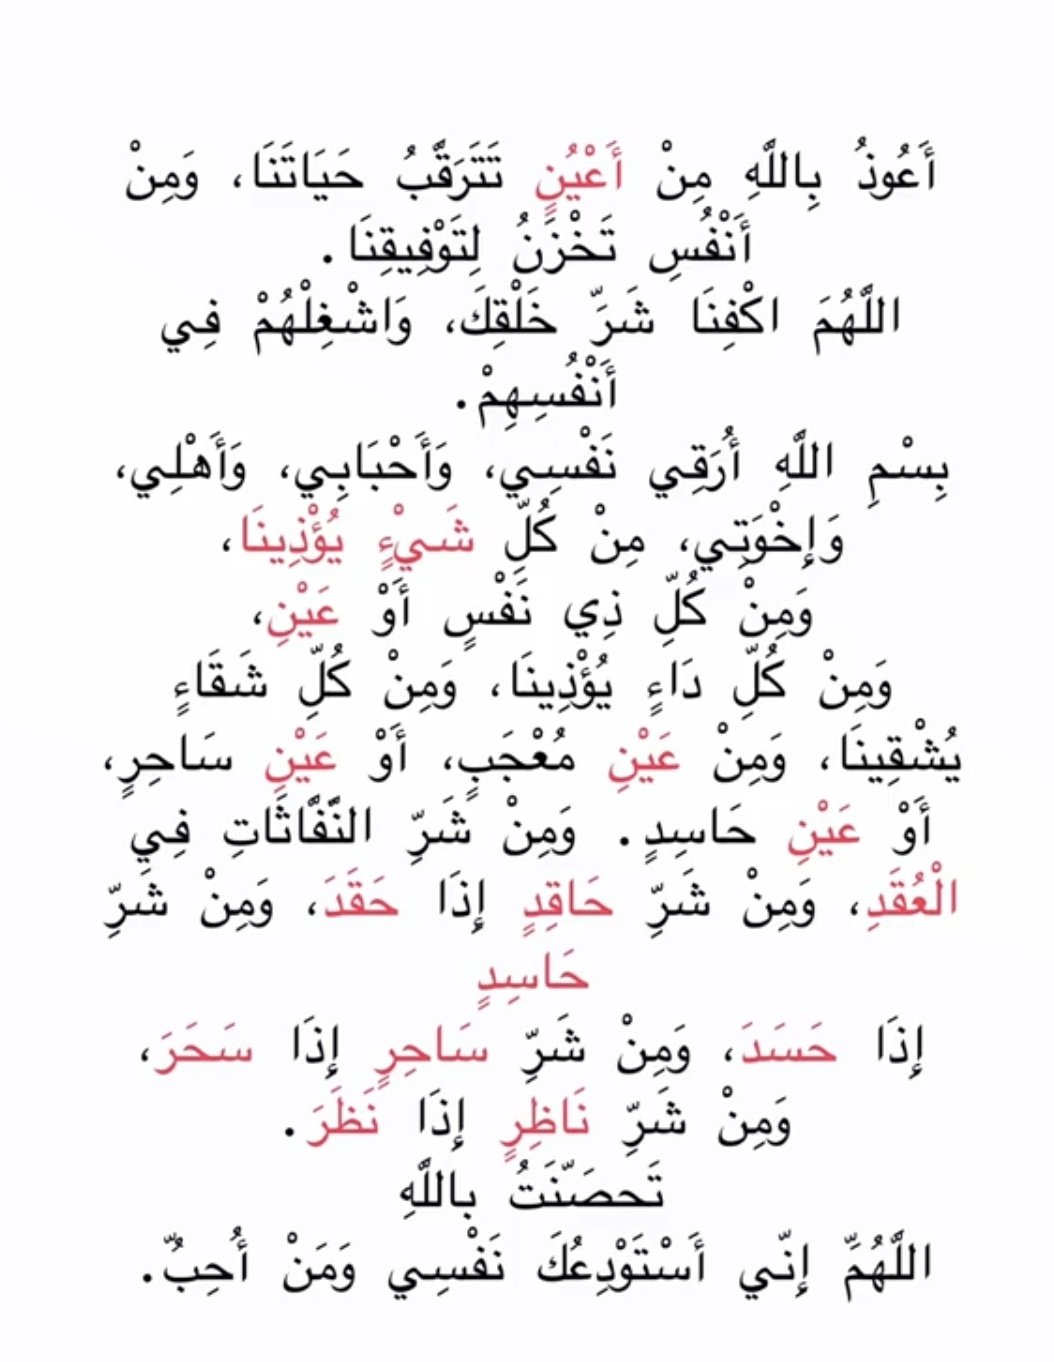 أَعُوذُ بِاللَّهِ مِنْ أَعْيُنٍ تَتَرَقَّبُ حَيَاتَنَا، وَمِنْ
أَنْفُسِ تَحْزَنُ لِتَوْفِيقِنَا.
اللَّهُمَ اكْفِنَا شَرَّ خَلْقِكَ، وَاشْغِلْهُمْ فِي
أَنْفُسِهِمْ.
بِسْمِ اللَّهِ أَرَقِي نَفْسِي، وَأَحْبَابِي، وَأَهْلِي،
وَإِخْوَتِي، مِنْ كُلِّ شَيْءٍ يُؤْذِينَا،
وَمِنْ كُلِّ ذِي نَفْسٍ أَوْ عَيْنٍ،
وَمِنْ كُلِّ دَاءٍ يُؤْذِينَا، وَمِنْ كُلِّ شَقَاءٍ
يُشْقِينَا، وَمِنْ عَيْنِ مُعْجَبٍ، أَوْ عَيْنِ سَاحِرٍ،
أَوْ عَيْنِ حَاسِدٍ. وَمِنْ شَرِّ النَّفَّاثَاتِ فِي
الْعُقَدِ، وَمِنْ شَرِّ حَاقِدٍ إِذَا حَقَدَ، وَمِنْ شَرِّ
حَاسِدٍ
إِذَا حَسَدَ، وَمِنْ شَرِّ سَاحِرٍ إِذَا سَحَرَ،
وَمِنْ شَرِّ نَاظِرٍ إِذَا نَظَرَ.
تَحصَّنَتُ بِاللَّهِ
اللَّهُمِّ إِنّي أَسْتَوْدِعُكَ نَفْسِي وَمَنْ أُحِبُّ.